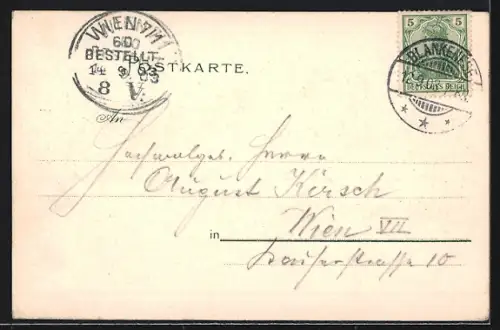 WIEN 7/1
60
BESTELLT
14 9 03
8 V.
POSTKARTE.
5 5
DEUTSCHES REICH
BLANKENESE
An
Hochwolgeb. Herrn
August Kirsch
in Wien VII
Kaiserstrasse 10